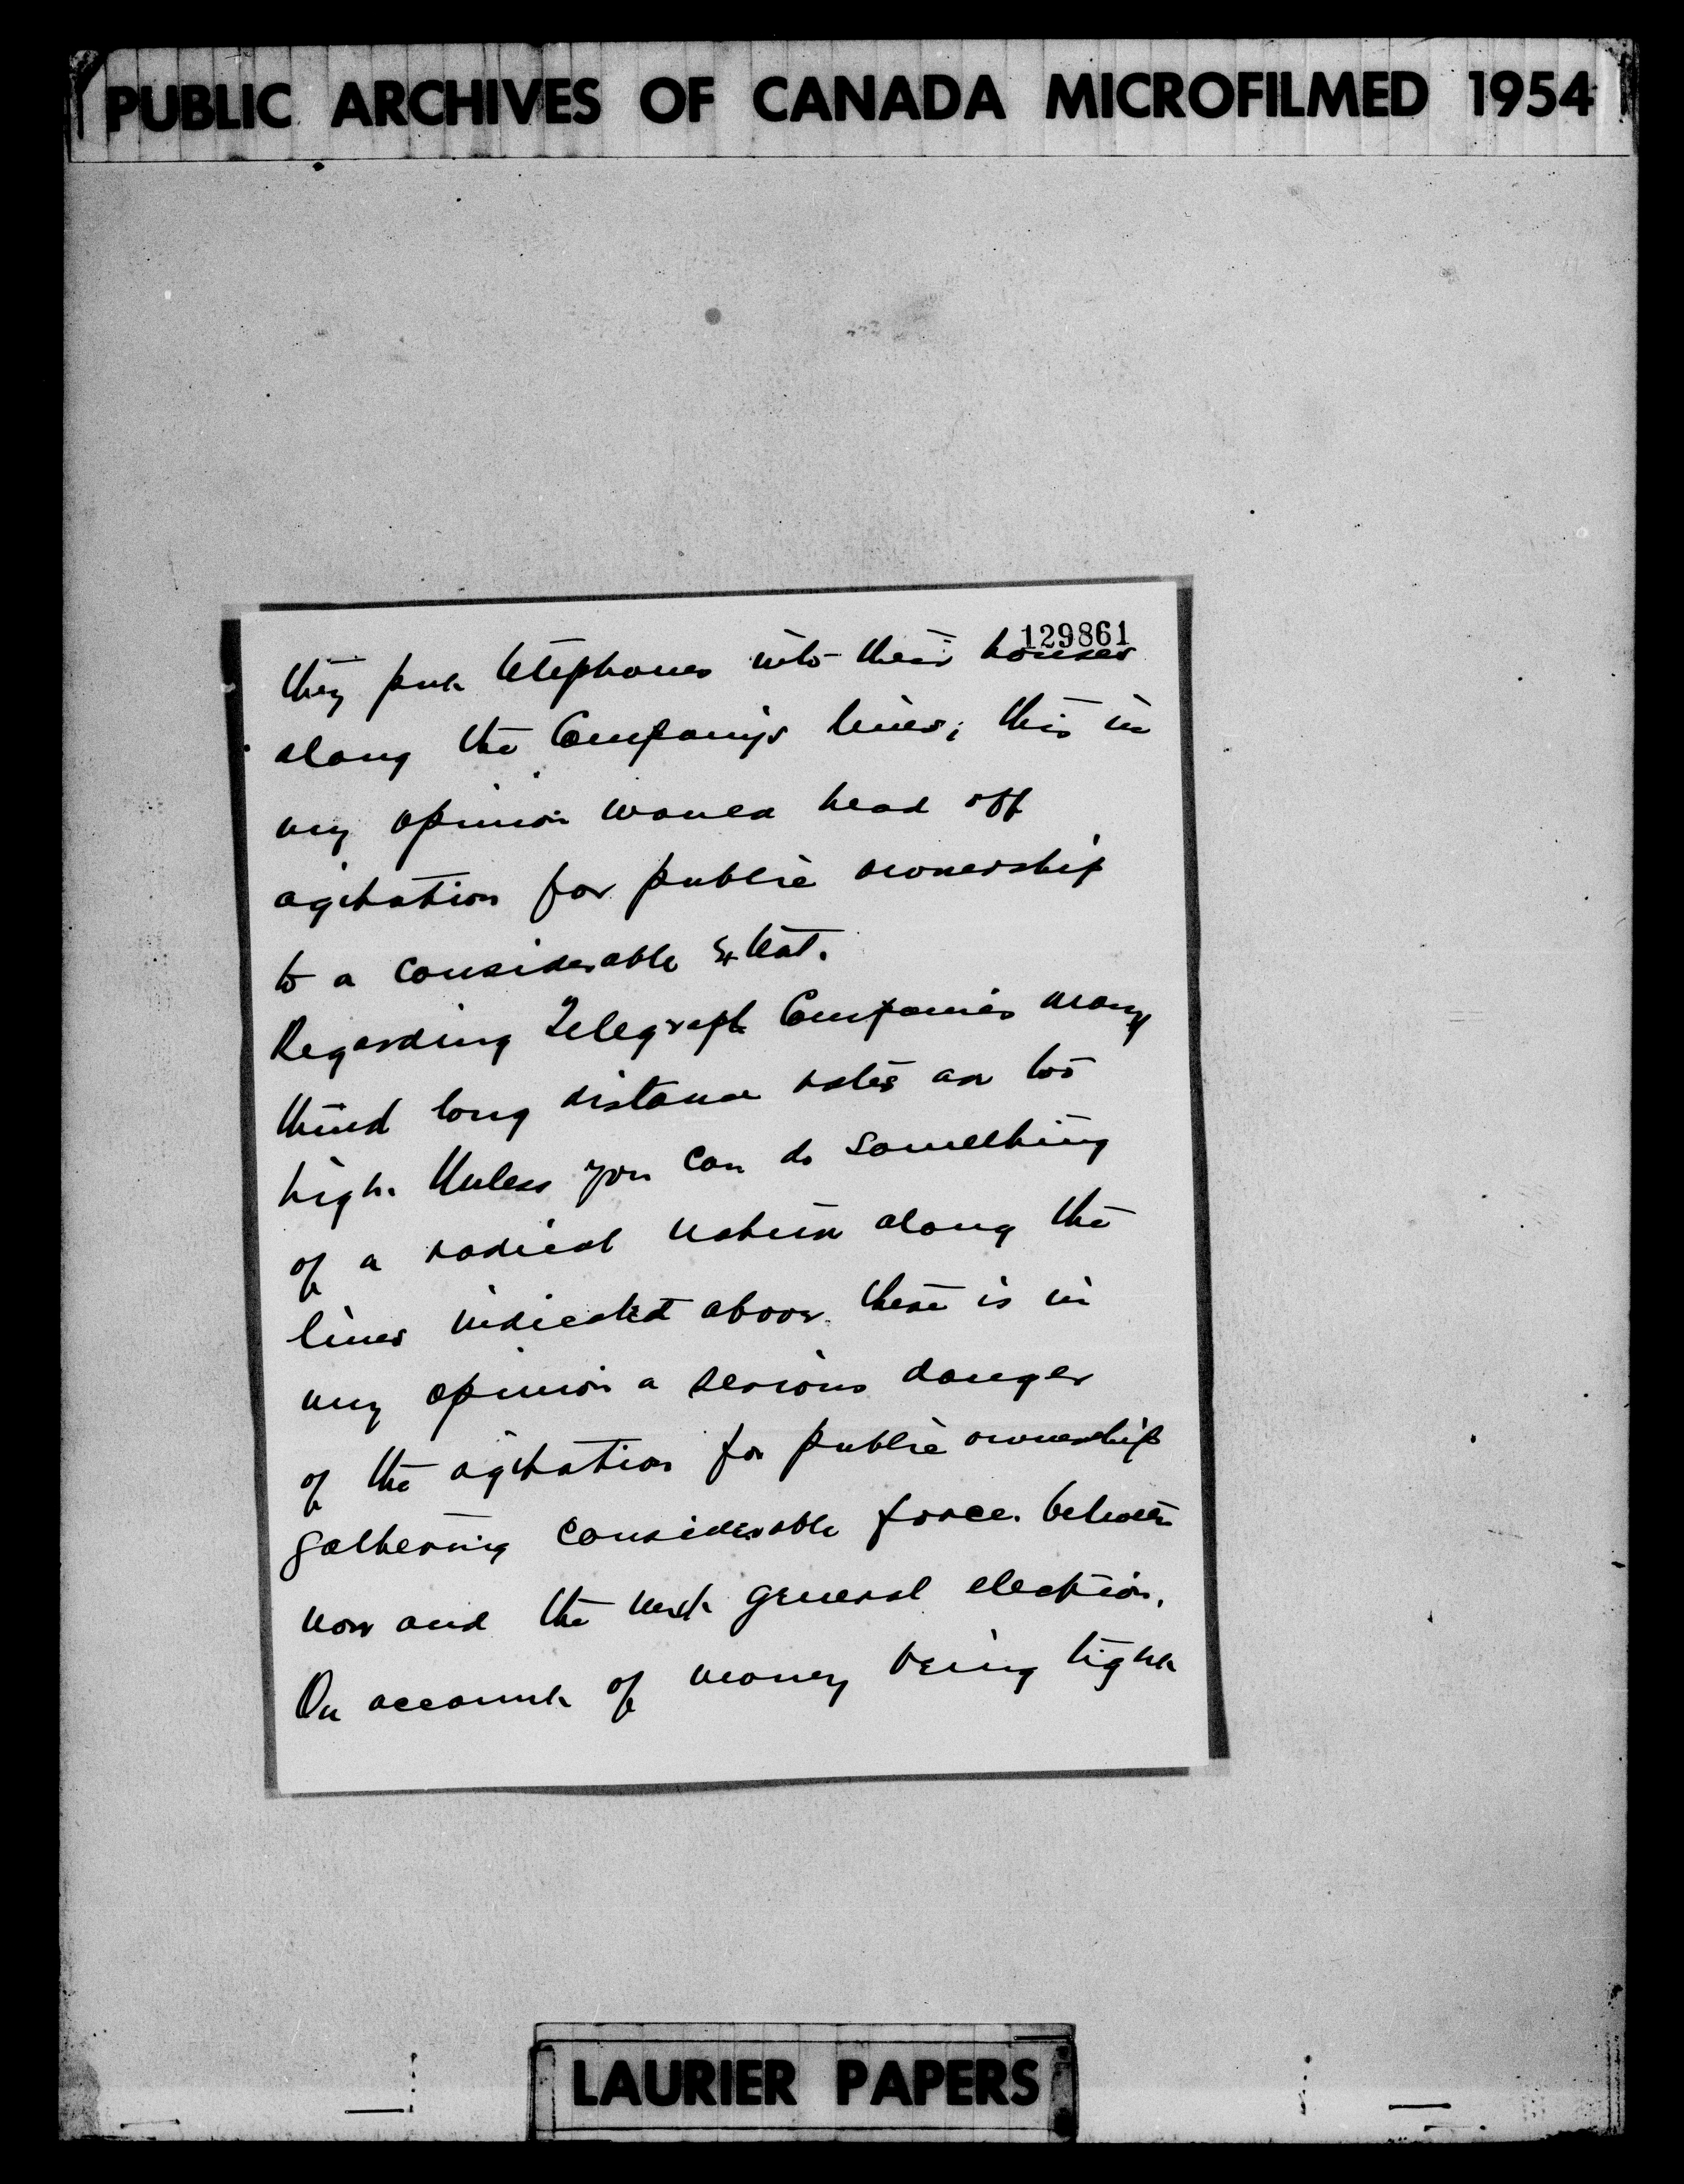 PUBLIC ARCHIVES OF CANADA MICROFILMED 1954
129861
they put telephones into their houses
along the Company's lines; this in
my opinion would head off
agitation for public ownership
to a considerable extent.
Regarding Telegraph Companies many
think long distance rates are too
high. Unless you can do something
of a radical nature along the
lines indicated above there is in
my opinion a serious danger
of the agitation for public ownership
gathering considerable force between
now and the next general election.
On account of money being tight
LAURIER PAPERS